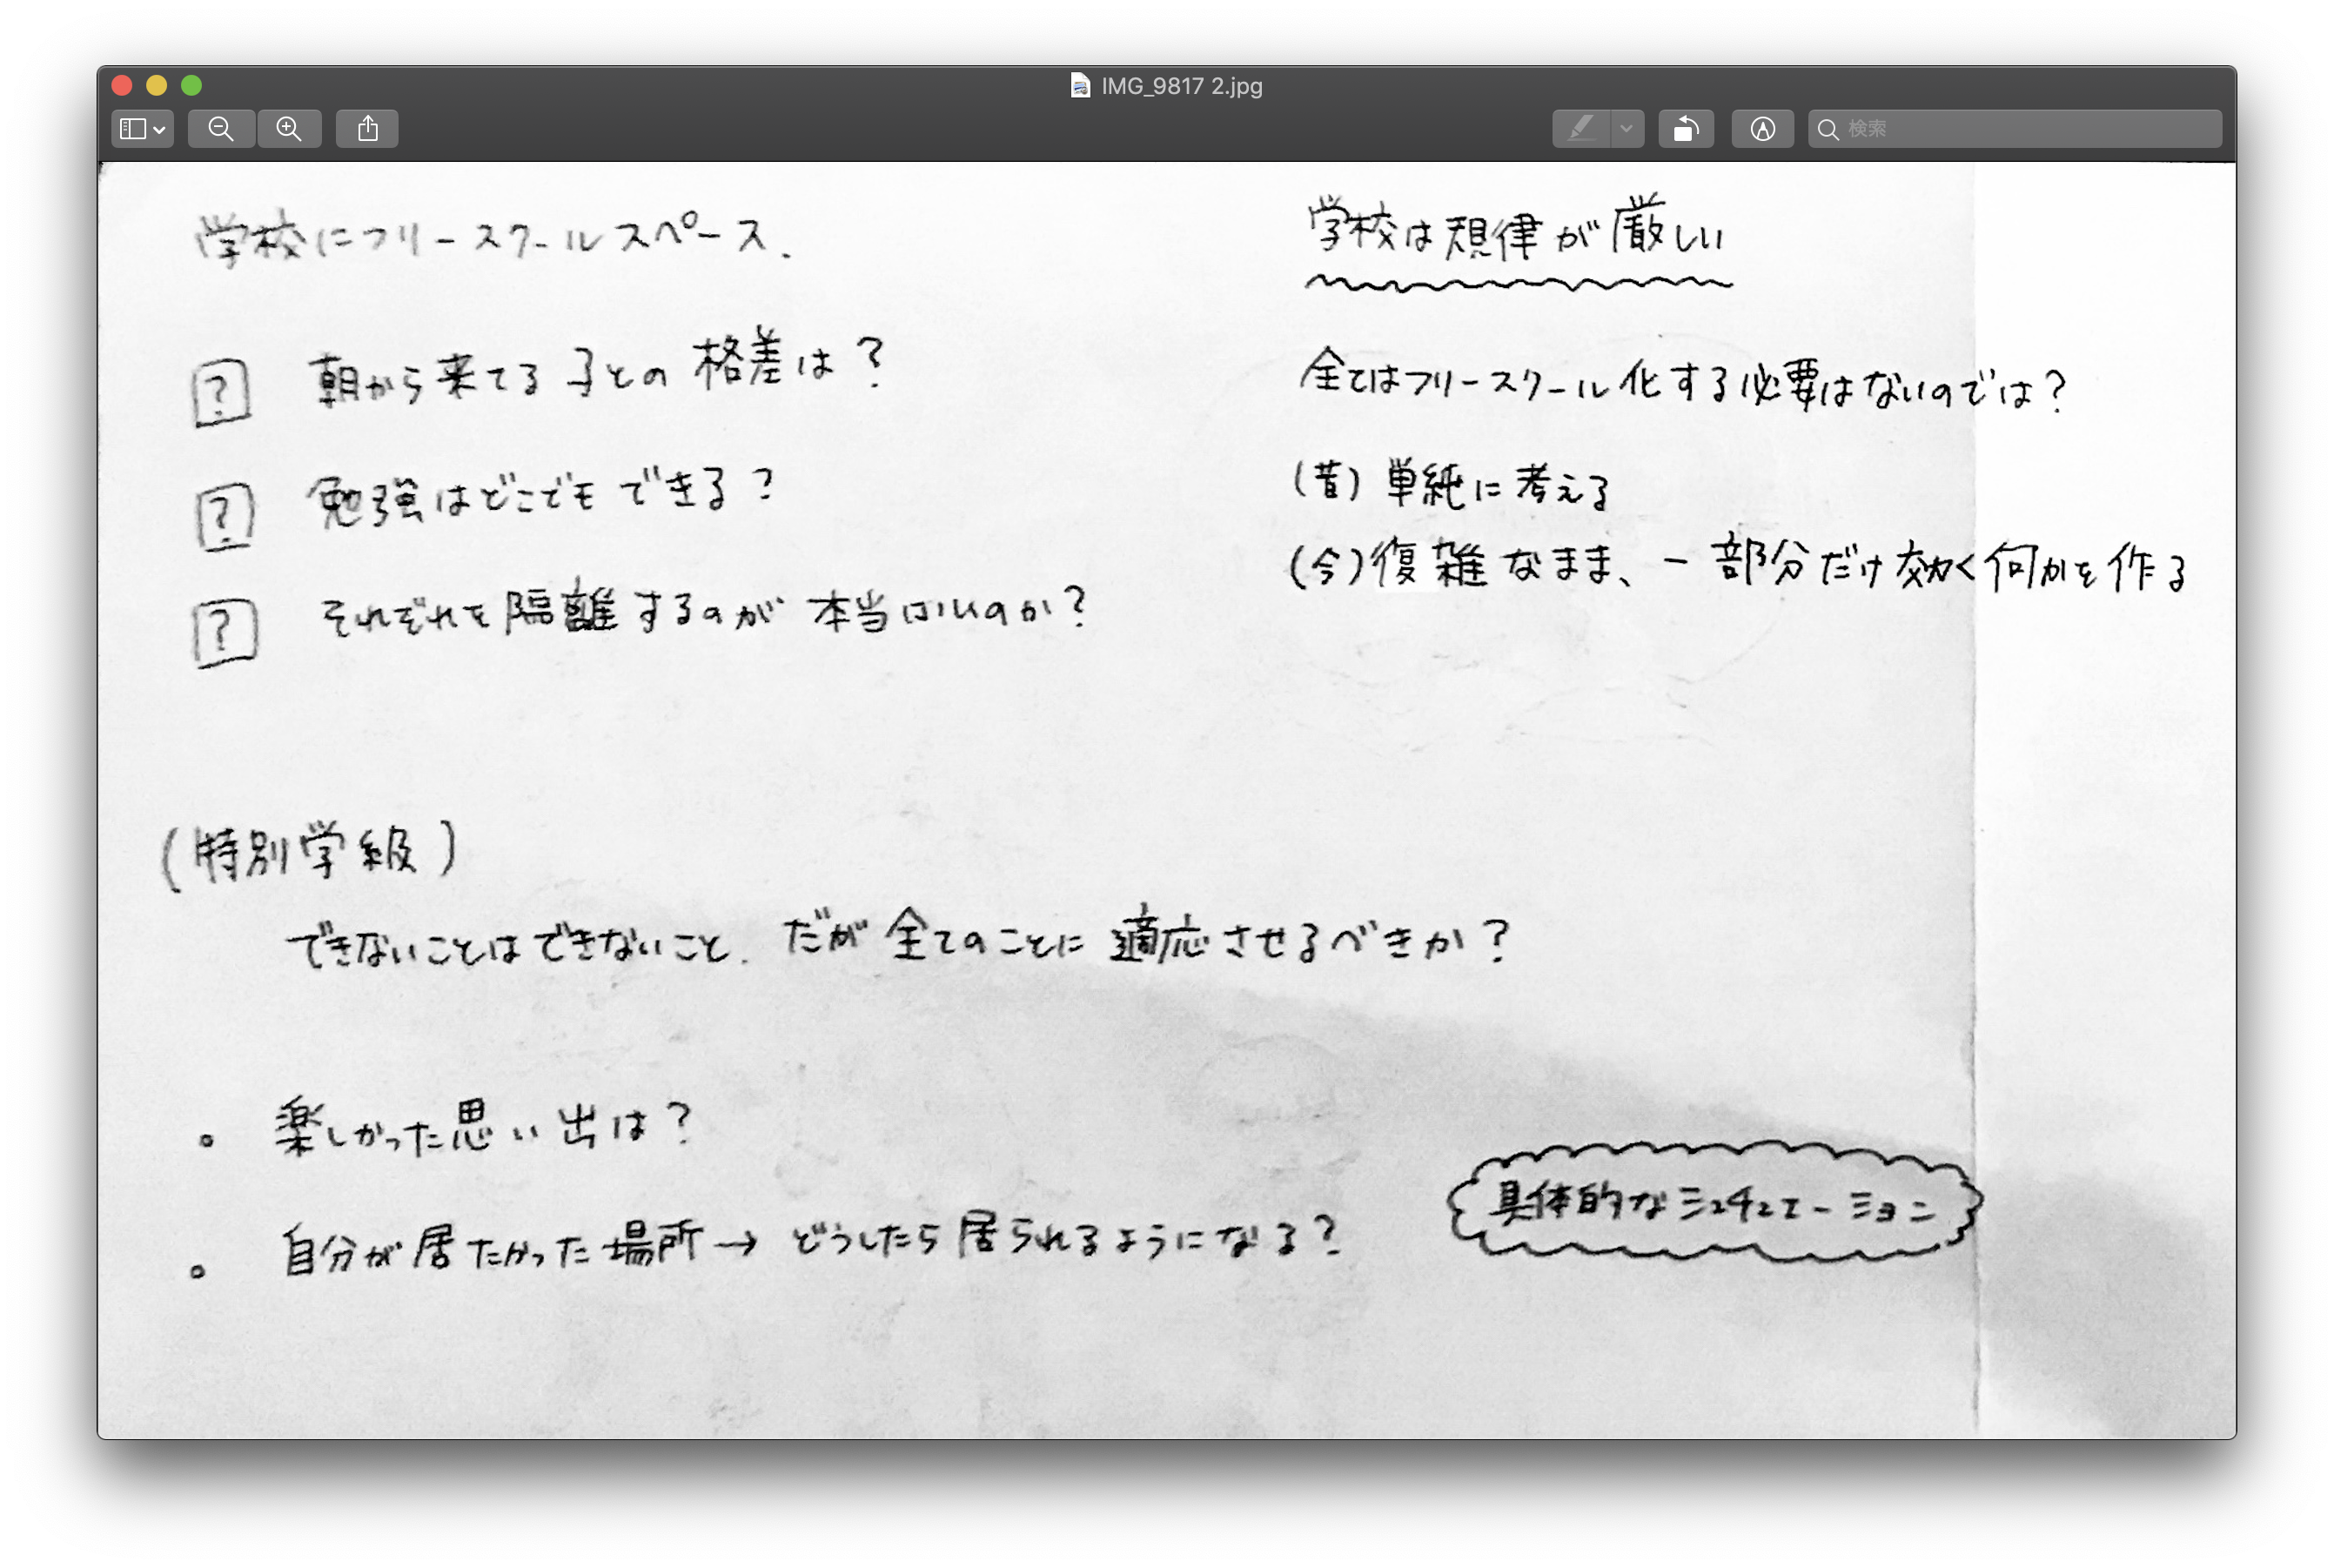 IMG_9817 2.jpg
検索
学校にフリースクールスペース.
? 朝から来てる子との格差は?
? 勉強はどこでもできる?
? それぞれを隔離するのが本当はいいのか?
学校は規律が厳しい
全てはフリースクール化する必要はないのでは?
(昔) 単純に考える
(今) 復雑なまま、一部分だけ効く何かを作る
(特別学級)
できないことはできないこと. だが全てのことに適応させるべきか?
。楽しかった思い出は?
。自分が居たかった場所→どうしたら居られるようになる?
具体的なシュチュエーション